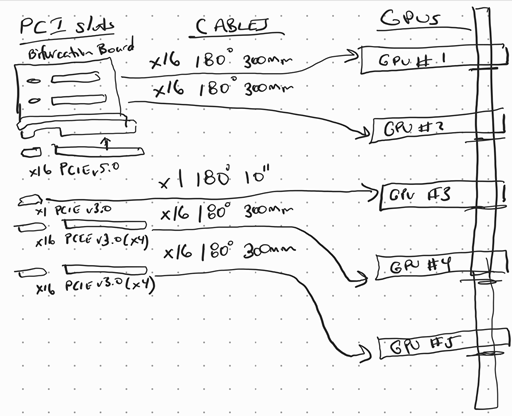 PCI slots
CABLES
GPUs
Bifurcation Board
x16 180° 300mm
GPU #1
x16 180° 300mm
GPU #2
x16 PCIE v5.0
x1 180° 10"
x1 PCIE v3.0
GPU #3
x16 180° 300mm
x16 PCIE v3.0 (x4)
x16 180° 300mm
GPU #4
x16 PCIE v3.0 (x4)
GPU #5